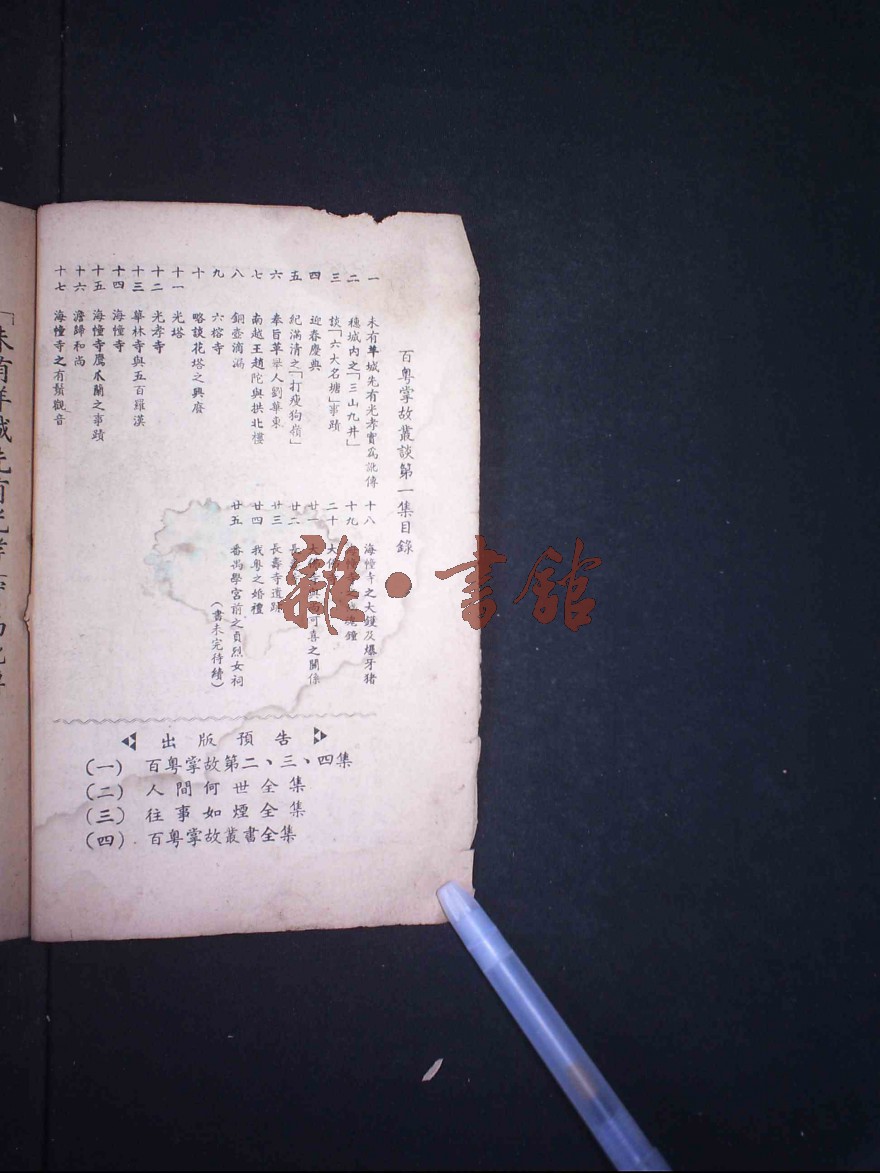 百粵掌故叢談第一集目錄
一 未有羊城先有光孝實為訛傳
二 穗城內之「三山九井」
三 談「六大名塘」事蹟
四 迎春慶典
五 紀滿清之「打瘦狗嶺」
六 奉旨革舉人劉華東
七 南越王趙陀與拱北樓
八 銅壺滴漏
九 六榕寺
十 略談花塔之興廢
十一 光塔
十二 光孝寺
十三 華林寺與五百羅漢
十四 海幢寺
十五 海幢寺鷹爪蘭之事蹟
十六 澹歸和尚
十七 海幢寺之有鬚觀音
十八 海幢寺之大鑊及爆牙豬
十九 鐘
二十 大
廿一 大佛寺與尚可喜之關係
廿二 長壽
廿三 長壽寺遺跡
廿四 我粵之婚禮
廿五 番禺學宮前之貞烈女祠
(書未完待續)
出版預告
(一) 百粵掌故第二、三、四集
(二) 人間何世全集
(三) 往事如煙全集
(四) 百粵掌故叢書全集
「未有羊城先有光孝
雜·書館